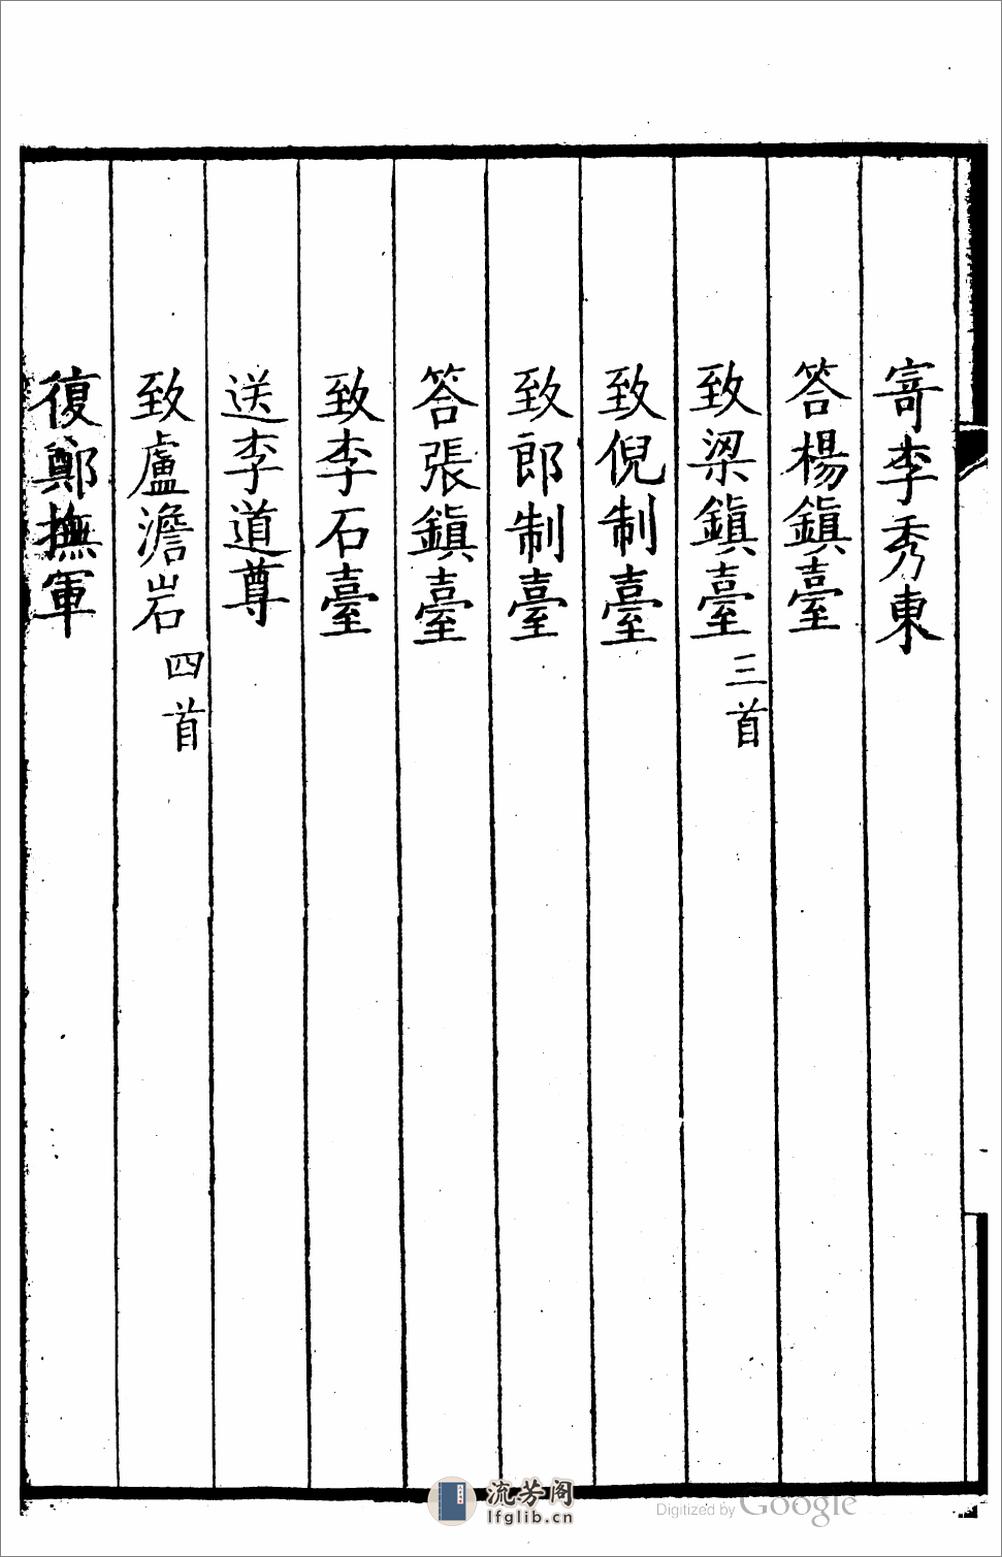 寄李秀東
答楊鎮臺
致梁鎮臺三首
致倪制臺
致郎制臺
答張鎮臺
致李石臺
送李道尊
致盧澹岩四首
復鄭撫軍
流芳阁
lfglib.cn
Digitized by Google